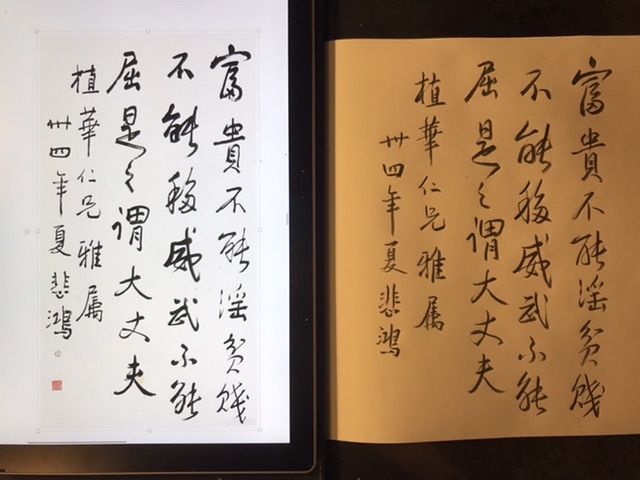 富貴不能淫貧賤
不能移威武不能
屈是之謂大丈夫
植華仁兄雅属
卅四年夏悲鴻
富貴不能淫貧賤
不能移威武不能
屈是之謂大丈夫
植華仁兄雅属
卅四年夏悲鴻